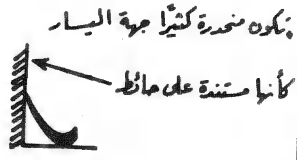 تكون منحدرة كثيرًا جهة اليسار
كأنها مستندة على حائط